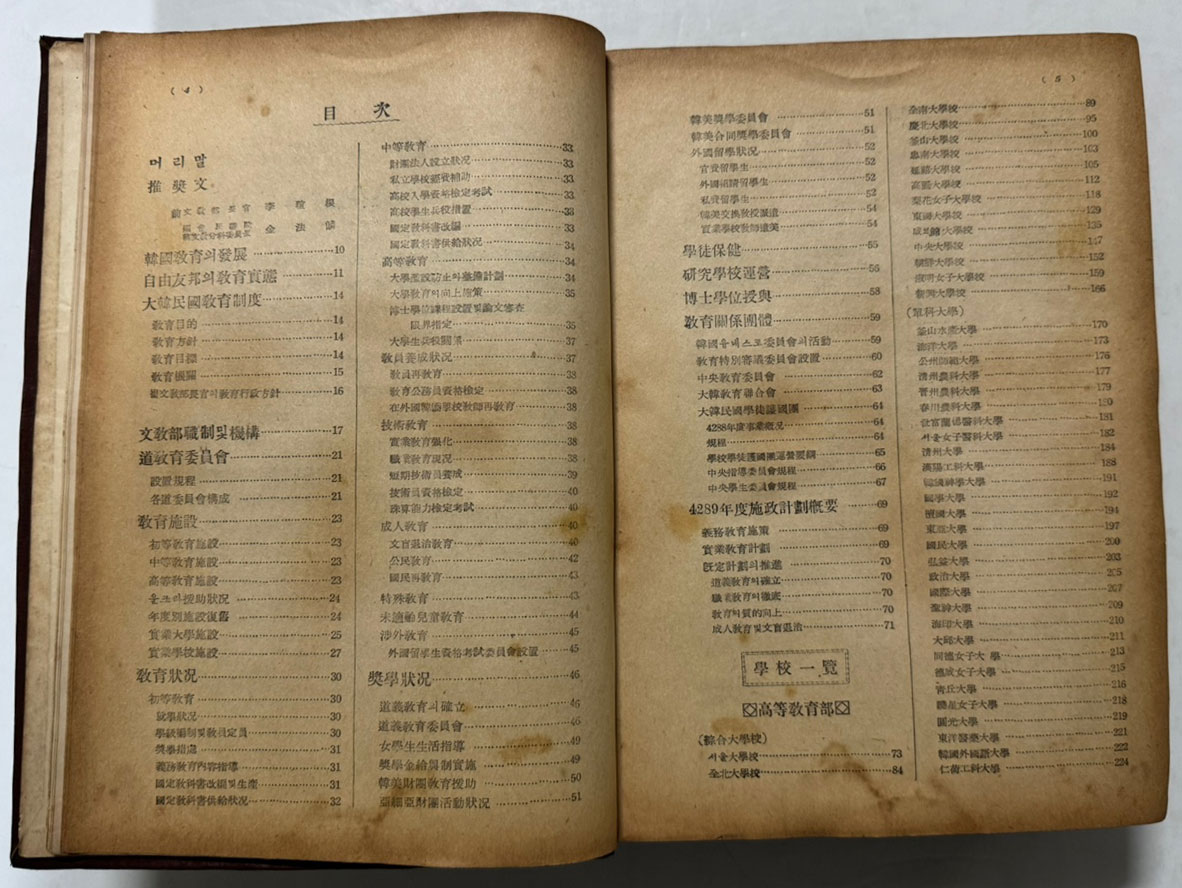 ( 4 )
目 次
머 리 말
推 奬 文
前文敎部長官 李 瑄 根
金 法
韓國敎育의發展 10
自由友邦의敎育實態 11
大韓民國敎育制度 14
敎育目的 14
敎育方針 14
敎育目標 14
敎育機關 15
崔文敎部長官의敎育行政方針 16
文敎部職制및機構 17
道敎育委員會 21
設置規程 21
各道委員會構成 21
敎育施設 23
初等敎育施設 23
中等敎育施設 23
高等敎育施設 23
운크라援助狀況 24
年度別施設復舊 24
實業大學施設 25
實業學校施設 27
敎育狀況 30
初等敎育 30
就學狀況 30
學級編制및敎員定員 30
奬學指導 31
義務敎育內容指導 31
國定敎科書改編및生產 31
國定敎科書供給狀況 32
中等敎育 33
財團法人設立狀況 33
私立學校經費補助 33
高校入學資格檢定考試 33
高校學生兵役措置 33
國定敎科書改編 33
國定敎科書供給狀況 34
高等敎育 34
大學濫設防止와整備計劃 34
大學敎育의向上施策 35
博士學位課程設置및論文審査
限界指定 35
大學生兵役關業 37
敎員養成狀況 37
敎員再敎育 38
敎育公務員資格檢定 38
在外國韓國學校敎師再敎育 38
技術敎育 38
實業敎育强化 38
職業敎育現況 38
短期技術員養成 39
技術員資格檢定 40
珠算能力檢定考試 40
成人敎育 40
文盲退治敎育 40
公民敎育 42
國民再敎育 43
特殊敎育 43
未就齡兒童敎育 44
涉外敎育 45
外國留學生資格考試委員會設置 45
奬學狀況 46
道義敎育의確立 46
道義敎育委員會 46
女學生生活指導 49
奬學金給與制實施 49
韓美財團敎育援助 50
亞細亞財團活動狀況 51
( 5 )
韓美奬學委員會 51
韓美合同奬學委員會 51
外國留學狀況 52
官費留學生 52
外國招請留學生 52
私費留學生 52
韓美交換敎授派遣 54
實業學校敎師遣美 54
學徒保健 55
硏究學校運營 56
博士學位授與 58
敎育關係團體 59
韓國유네스코委員會의活動 59
敎育特別審議委員會設置 60
中央敎育委員會 62
大韓敎育聯合會 63
大韓民國學徒護國團 64
4288年度事業槪況 64
規程 64
學校學徒護國團運營要綱 65
中央指導委員會規程 66
中央學生委員會規程 67
4289年度施政計劃槪要 69
義務敎育施策 69
實業敎育計劃 69
旣定計劃의推進 70
道義敎育의確立 70
職業敎育의徹底 70
敎育의質的向上 70
成人敎育및文盲退治 71
學校一覽
高等敎育部
(綜合大學校)
서울大學校 73
全北大學校 84
全南大學校 89
慶北大學校 95
釜山大學校 100
忠南大學校 103
延禧大學校 105
高麗大學校 112
梨花女子大學校 118
東國大學校 129
成均館大學校 135
中央大學校 147
朝鮮大學校 152
淑明女子大學校 159
新興大學校 166
(單科大學)
釜山水產大學 170
海洋大學 173
公州師範大學 176
濟州農科大學 177
晋州農科大學 179
春川農科大學 180
世富蘭偲醫科大學 181
서울女子醫科大學 182
淸州大學 184
漢陽工科大學 188
韓國神學大學 191
國學大學 192
檀國大學 194
東亞大學 197
國民大學 200
弘益大學 203
政治大學 205
國際大學 207
崇神大學 209
海印大學 210
大邱大學 211
同德女子大學 213
德成女子大學 215
靑丘大學 216
曉星女子大學 218
圓光大學 219
東洋醫藥大學 221
韓國外國語大學 222
仁荷工科大學 224